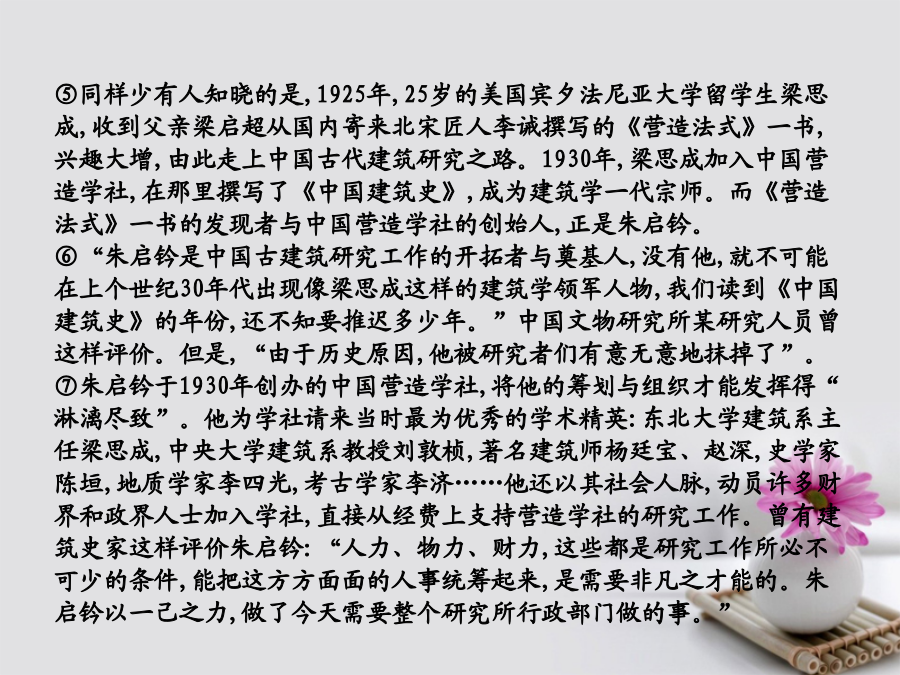 ⑤同样少有人知晓的是,1925年,25岁的美国宾夕法尼亚大学留学生梁思
成,收到父亲梁启超从国内寄来北宋匠人李诫撰写的《营造法式》一书,
兴趣大增,由此走上中国古代建筑研究之路。1930年,梁思成加入中国营
造学社,在那里撰写了《中国建筑史》,成为建筑学一代宗师。而《营造
法式》一书的发现者与中国营造学社的创始人,正是朱启钤。
⑥“朱启钤是中国古建筑研究工作的开拓者与奠基人,没有他,就不可能
在上个世纪30年代出现像梁思成这样的建筑学领军人物,我们读到《中国
建筑史》的年份,还不知要推迟多少年。”中国文物研究所某研究人员曾
这样评价。但是,“由于历史原因,他被研究者们有意无意地抹掉了”。
⑦朱启钤于1930年创办的中国营造学社,将他的筹划与组织才能发挥得“
淋漓尽致”。他为学社请来当时最为优秀的学术精英:东北大学建筑系主
任梁思成,中央大学建筑系教授刘敦桢,著名建筑师杨廷宝、赵深,史学家
陈垣,地质学家李四光,考古学家李济……他还以其社会人脉,动员许多财
界和政界人士加入学社,直接从经费上支持营造学社的研究工作。曾有建
筑史家这样评价朱启钤:“人力、物力、财力,这些都是研究工作所必不
可少的条件,能把这方方面面的人事统筹起来,是需要非凡之才能的。朱
启钤以一己之力,做了今天需要整个研究所行政部门做的事。”